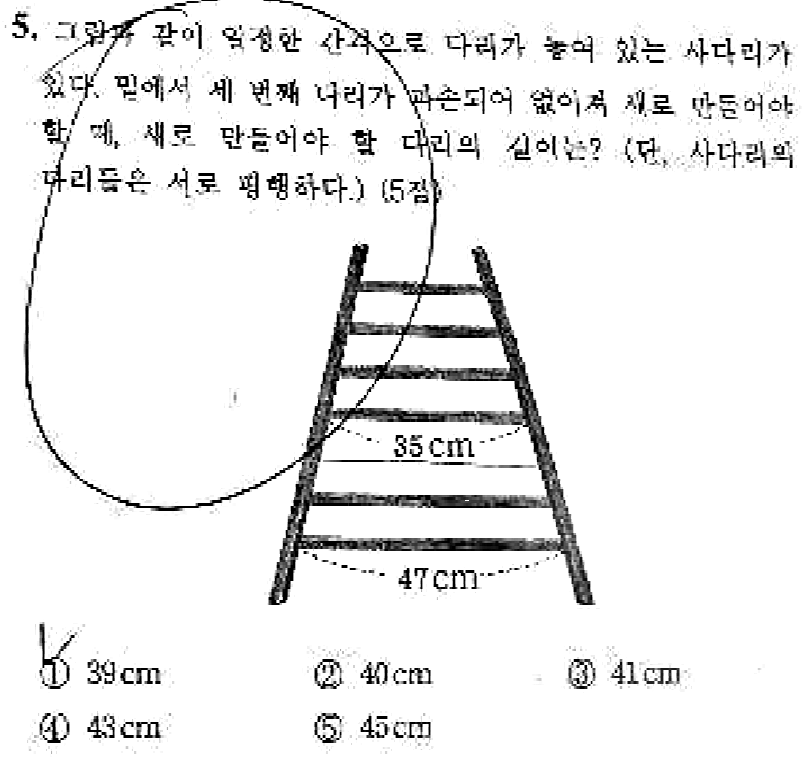 5. 그림과 같이 일정한 간격으로 다리가 놓여 있는 사다리가
있다. 밑에서 세 번째 다리가 파손되어 없어져 새로 만들어야
할 때, 새로 만들어야 할 다리의 길이는? (단, 사다리의
다리들은 서로 평행하다.) (5점)
35cm
47cm
① 39cm ② 40cm ③ 41cm
④ 43cm ⑤ 45cm